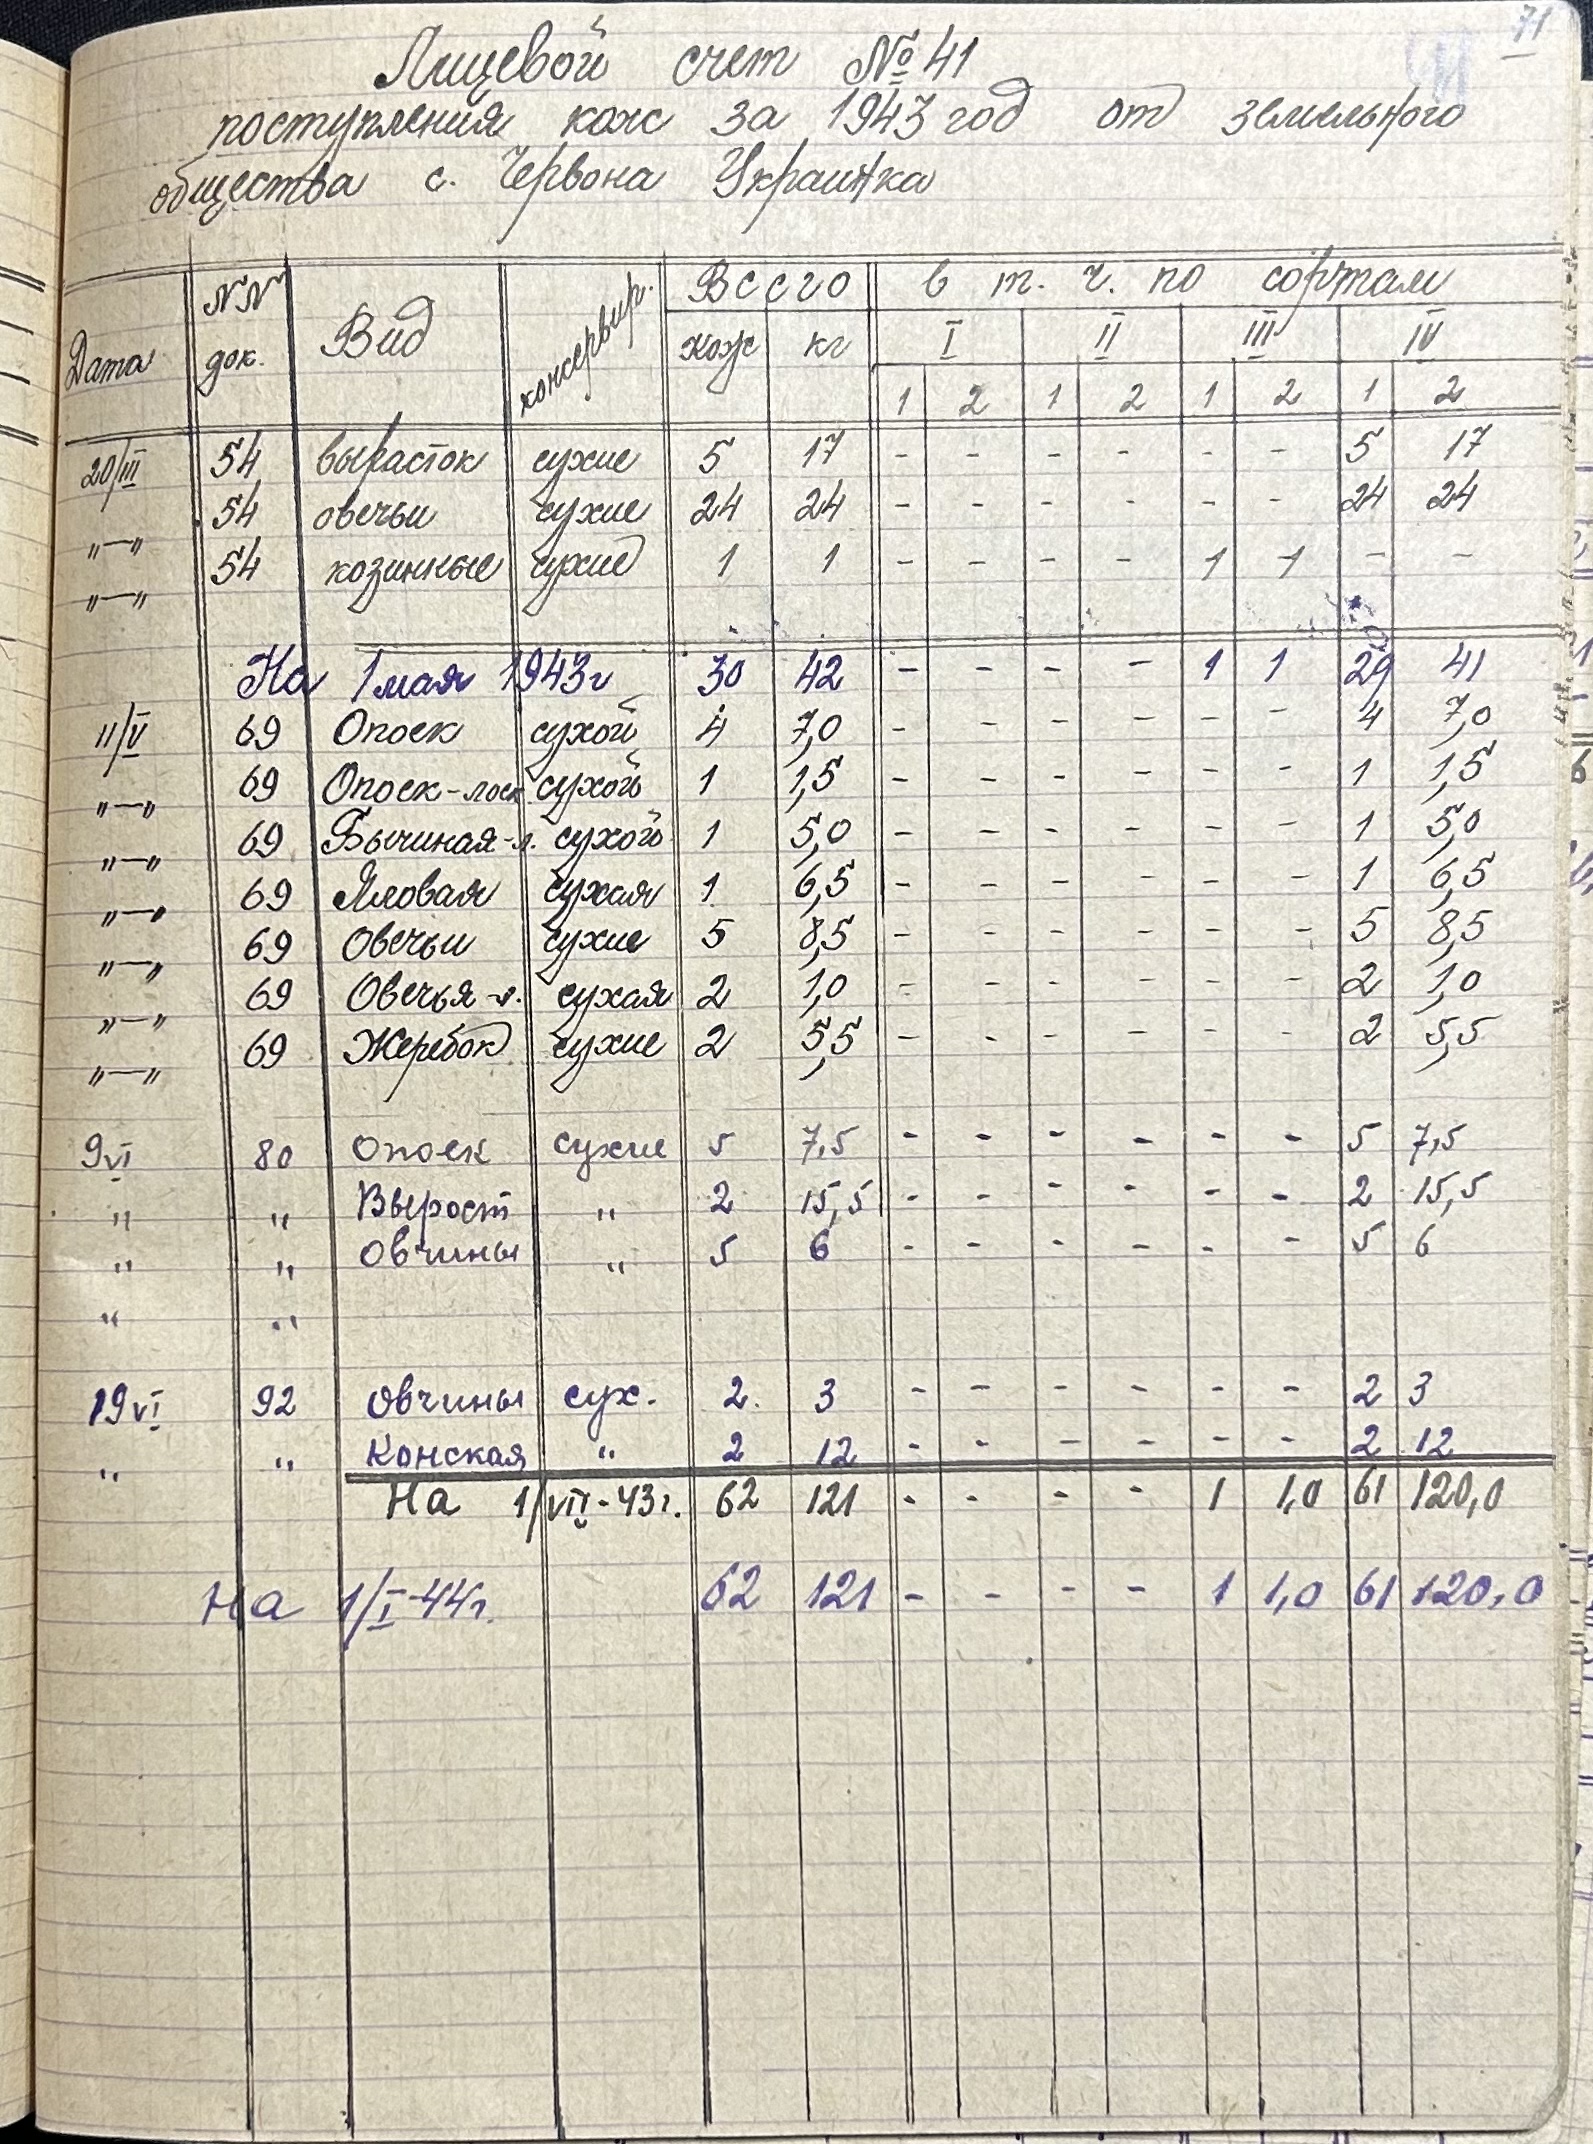 71
Лицевой счет № 41
поступления кож за 1943 год от земельного
общества с. Червона Украинка
Дата NN док. Вид консервир. Всего в т. ч. по сортам
кож кг I II III IV
1 2 1 2 1 2 1 2
20/III 54 вырасток сухие 5 17 - - - - - - 5 17
"—" 54 овечьи сухие 24 24 - - - - - - 24 24
"—" 54 козинные сухие 1 1 - - - - 1 1 - -
На 1 мая 1943г 30 42 - - - - 1 1 29 41
11/V 69 Опоек сухой 4 7,0 - - - - - - 4 7,0
"—" 69 Опоек-лоск. сухой 1 1,5 - - - - - - 1 1,5
"—" 69 Бычиная-л. сухой 1 5,0 - - - - - - 1 5,0
"—" 69 Яловая сухая 1 6,5 - - - - - - 1 6,5
"—" 69 Овечьи сухие 5 8,5 - - - - - - 5 8,5
"—" 69 Овечья-л. сухая 2 1,0 - - - - - - 2 1,0
"—" 69 Жеребок сухие 2 5,5 - - - - - - 2 5,5
9 VI 80 Опоек сухие 5 7,5 - - - - - - 5 7,5
" " Вырост " 2 15,5 - - - - - - 2 15,5
" " Овчины " 5 6 - - - - - - 5 6
" "
19 VI 92 Овчины сух. 2. 3 - - - - - - 2 3
" " Конская " 2 12 - - - - - - 2 12
На 1/VII-43г. 62 121 - - - - 1 1,0 61 120,0
На 1/I-44г. 62 121 - - - - 1 1,0 61 120,0